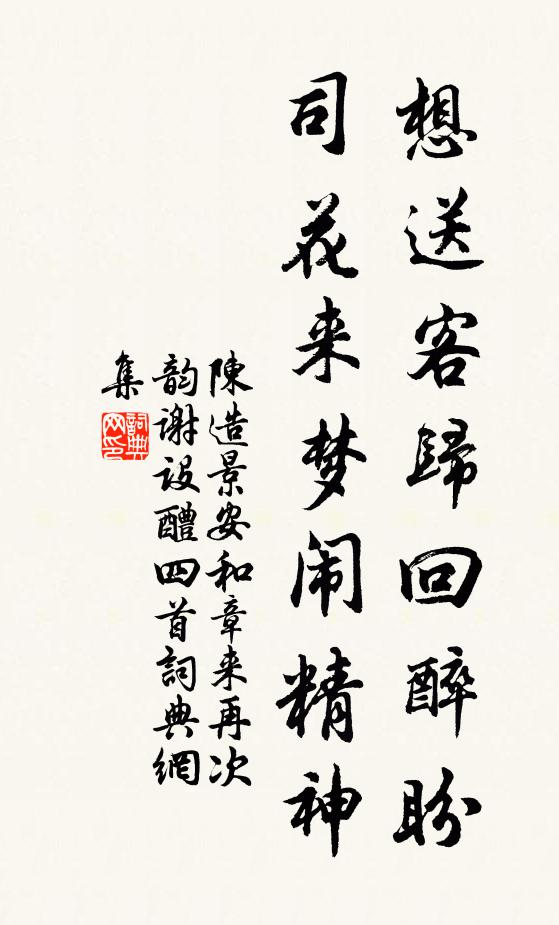 想送客歸回醉盼
司花来梦闹精神
陳造景安和章来再次
韵谢设醴四首詞典網
集
詞典
网印